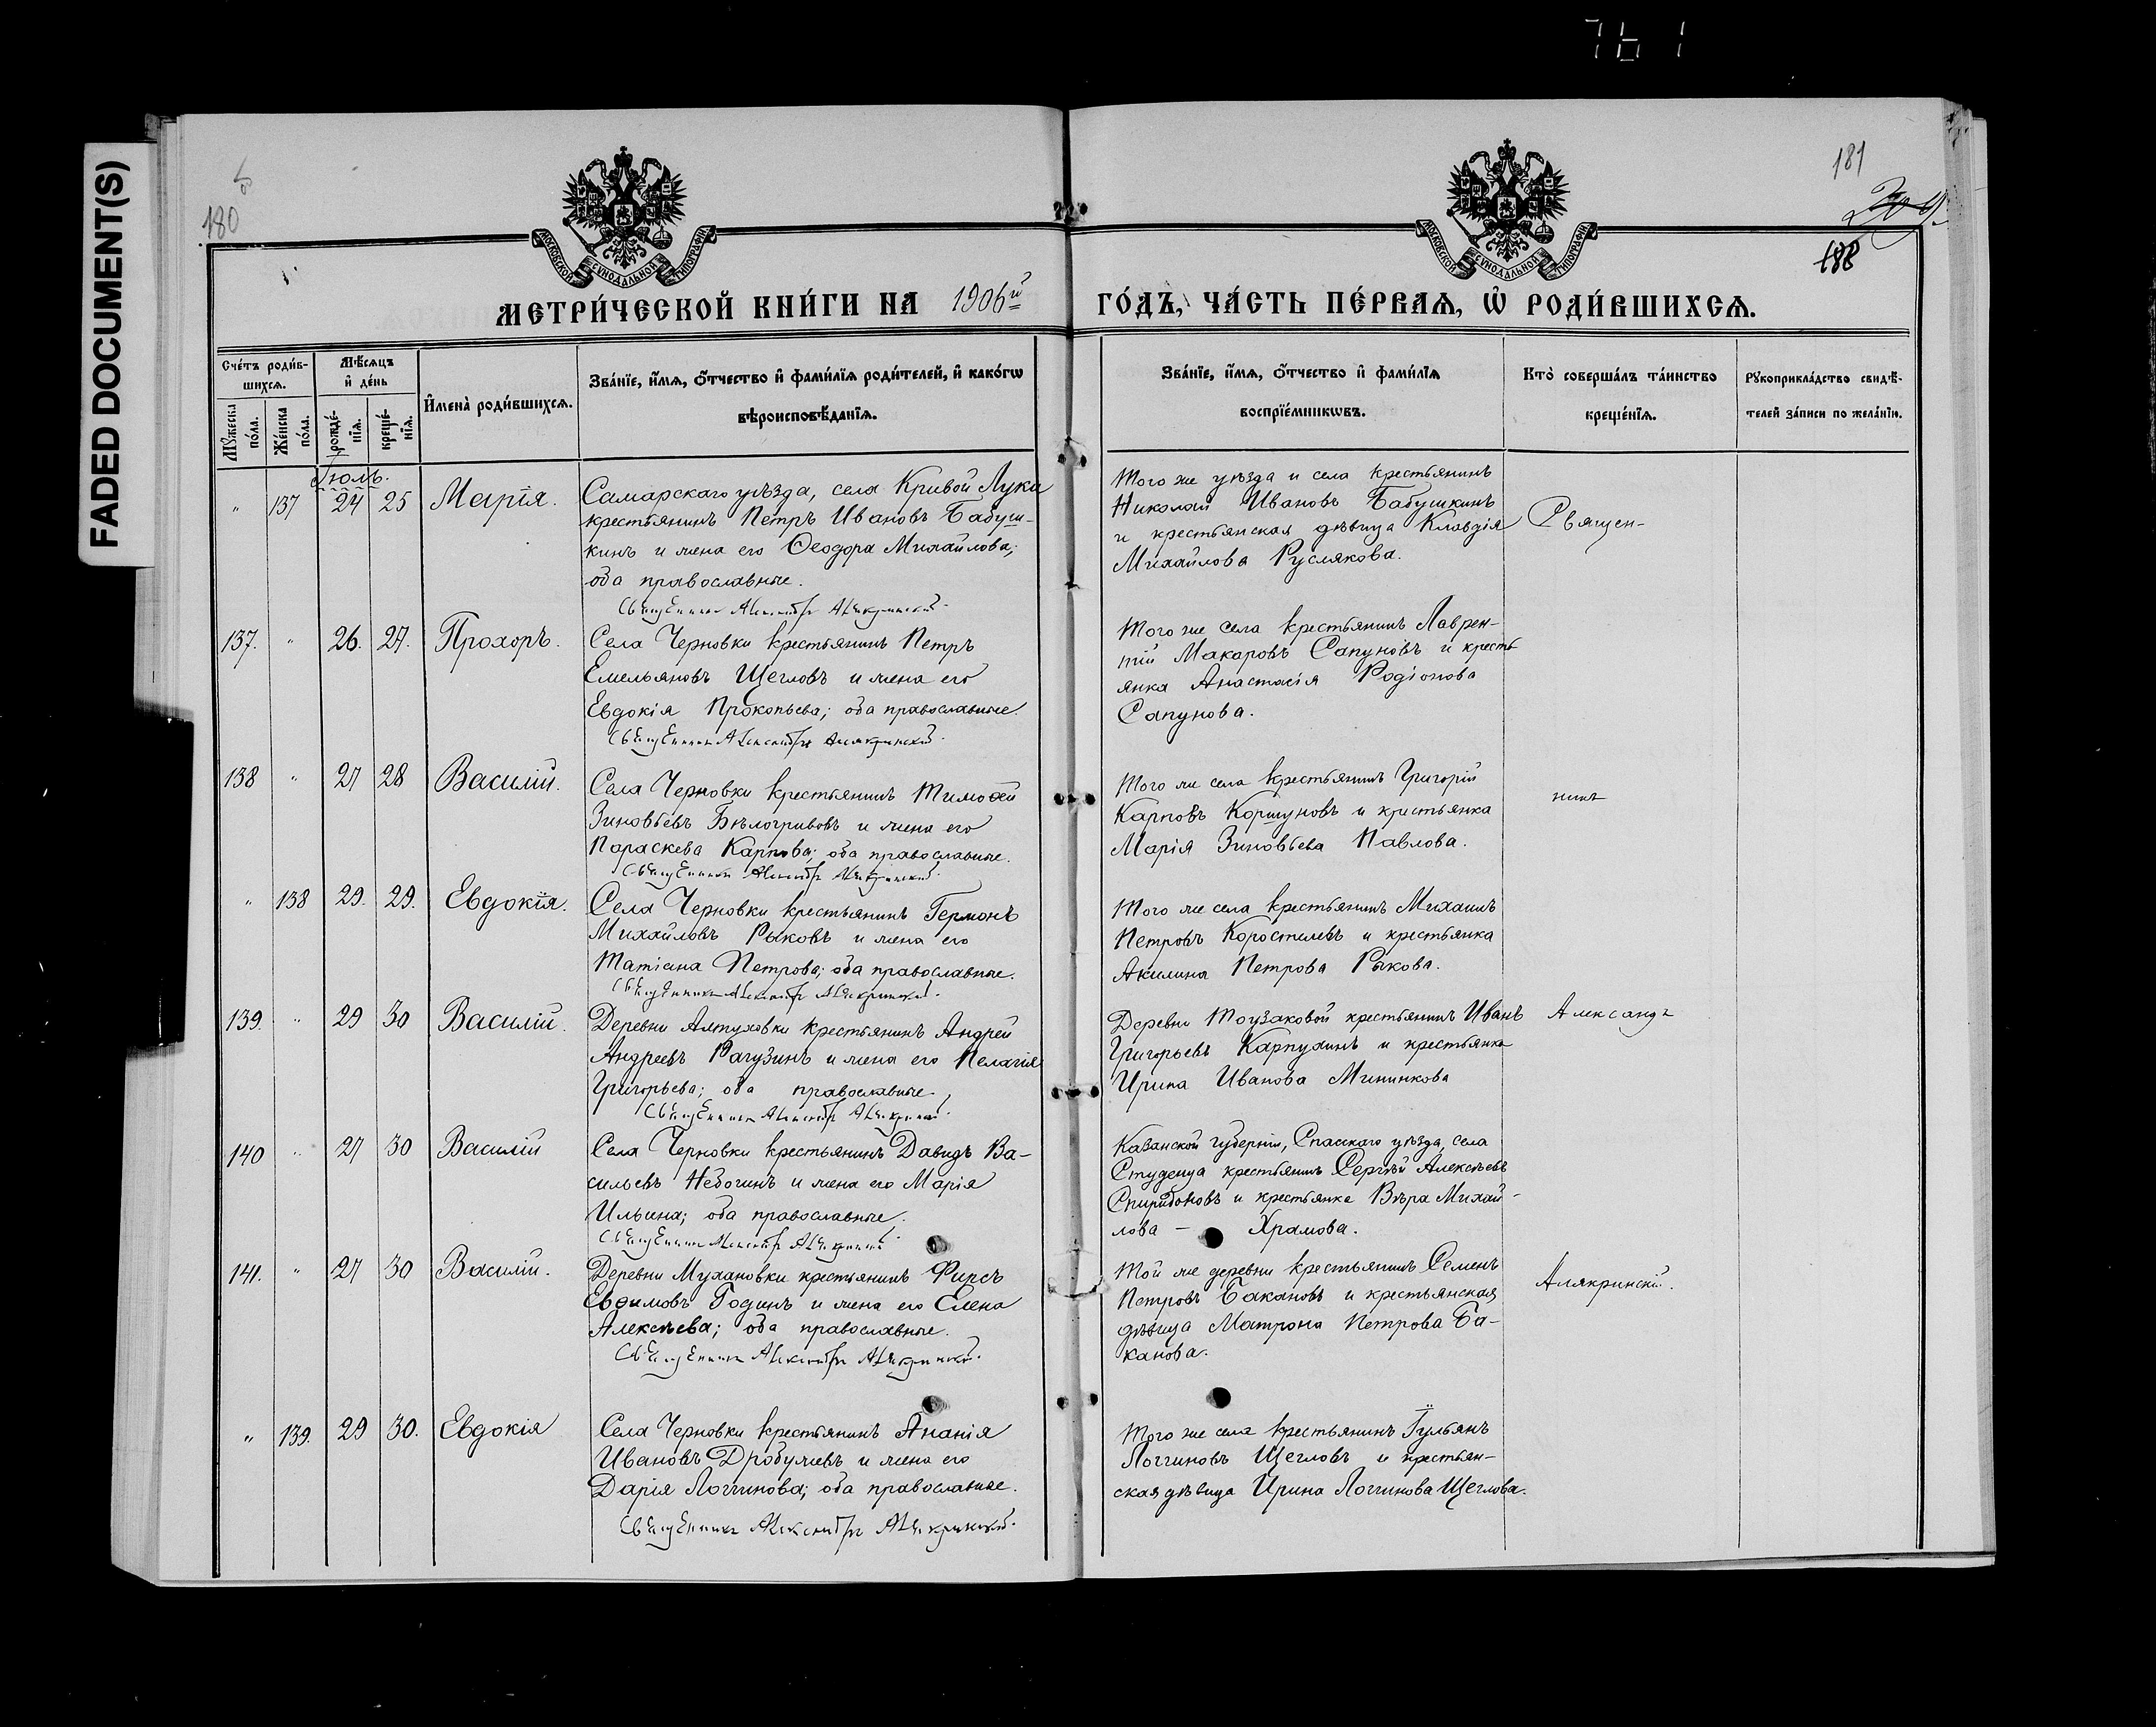 761
FADED DOCUMENT(S)
180
181
209.
188
МОСКОВСКОЙ СѴНОДАЛЬНОЙ ТИПОГРАФІИ
МОСКОВСКОЙ СѴНОДАЛЬНОЙ ТИПОГРАФІИ
МЕТРИ́ЧЕСКОЙ КНИ́ГИ НА 1906й ГО́ДЪ, ЧА́СТЬ ПЕ́РВАѦ, Ѡ҆ РОДИ́ВШИХСѦ.
Сче́тъ роди́в-
шихсѧ.
Мꙋ́жеска по́ла.
Же́нска по́ла.
Мѣ́сѧцъ
и҆ де́нь
рожде́-
нїѧ.
креще́-
нїѧ.
И҆мена̀ роди́вшихсѧ.
Зва́нїе, и҆́мѧ, ѻ҆́тчество и҆ фами́лїѧ роди́телей, и҆ како́гѡ
вѣроисповѣ́данїѧ.
Зва́нїе, и҆́мѧ, ѻ҆́тчество и҆ фами́лїѧ
воспрїе́мникѡвъ.
Кто̀ соверша́лъ та́инство
креще́нїѧ.
Рꙋкоприкла́дство свидѣ́-
телей за́писи по жела́нїю.
Іюль.
" 137 24 25 Марія.
Самарскаго уѣзда, села Кривой Луки
крестьянинъ Петръ Ивановъ Бабуш-
кинъ и жена его Ѳеодора Михайлова;
оба православные.
Священникъ Александръ Алякринскій.
Того же уѣзда и села крестьянинъ
Николай Ивановъ Бабушкинъ
и крестьянская дѣвица Клавдія
Михайлова Руслякова.
Священ-
137. " 26. 27. Прохоръ.
Села Черновки крестьянинъ Петръ
Емельяновъ Щегловъ и жена его
Евдокія Прокопьева; оба православные.
Священникъ Александръ Алякринскій.
Того же села крестьянинъ Лаврен-
тій Макаровъ Сапуновъ и кресть
янка Анастасія Родіонова
Сапунова.
138 " 27 28 Василій.
Села Черновки крестьянинъ Тимоѳей
Зиновьевъ Бѣлогривовъ и жена его
Параскева Карпова; оба православные.
Священникъ Александръ Алякринскій.
Того же села крестьянинъ Григорій
Карповъ Коршуновъ и крестьянка
Марія Зиновьева Павлова.
никъ
" 138 29. 29. Евдокія.
Села Черновки крестьянинъ Германъ
Михайловъ Рыковъ и жена его
Татіана Петрова; оба православные.
Священникъ Александръ Алякринскій.
Того же села крестьянинъ Михаилъ
Петровъ Коростелевъ и крестьянка
Акилина Петрова Рыкова.
139. " 29 30 Василій.
Деревни Алтуховки крестьянинъ Андрей
Андреевъ Рагузинъ и жена его Пелагія
Григорьева; оба православные.
Священникъ Александръ Алякринскій.
Деревни Тоузаковой крестьянинъ Иванъ
Григорьевъ Карпухинъ и крестьянка
Ирина Иванова Мининкова
Александъ
140 " 27 30 Василій
Села Черновки крестьянинъ Давидъ Ва-
сильевъ Небогинъ и жена его Марія
Ильина; оба православные.
Священникъ Александръ Алякринскій.
Казанской губерніи, Спасскаго уѣзда, села
Студенца крестьянинъ Сергѣй Алексѣевъ
Спиридоновъ и крестьянка Вѣра Михай-
лова - Храмова.
141. " 27 30 Василій.
Деревни Мухановки крестьянинъ Фирсъ
Евѳимовъ Годинъ и жена его Елена
Алексѣева; оба православные.
Священникъ Александръ Алякринскій.
Той же деревни крестьянинъ Семенъ
Петровъ Бакановъ и крестьянская
дѣвица Матрона Петрова Ба-
канова.
Алякринскій.
" 139. 29 30. Евдокія
Села Черновки крестьянинъ Ананія
Ивановъ Дробужевъ и жена его
Дарія Логгинова; оба православные.
Священникъ Александръ Алякринскій.
Того же села крестьянинъ Іульянъ
Логгиновъ Щегловъ и крестьян-
ская дѣвица Ирина Логгинова Щеглова.